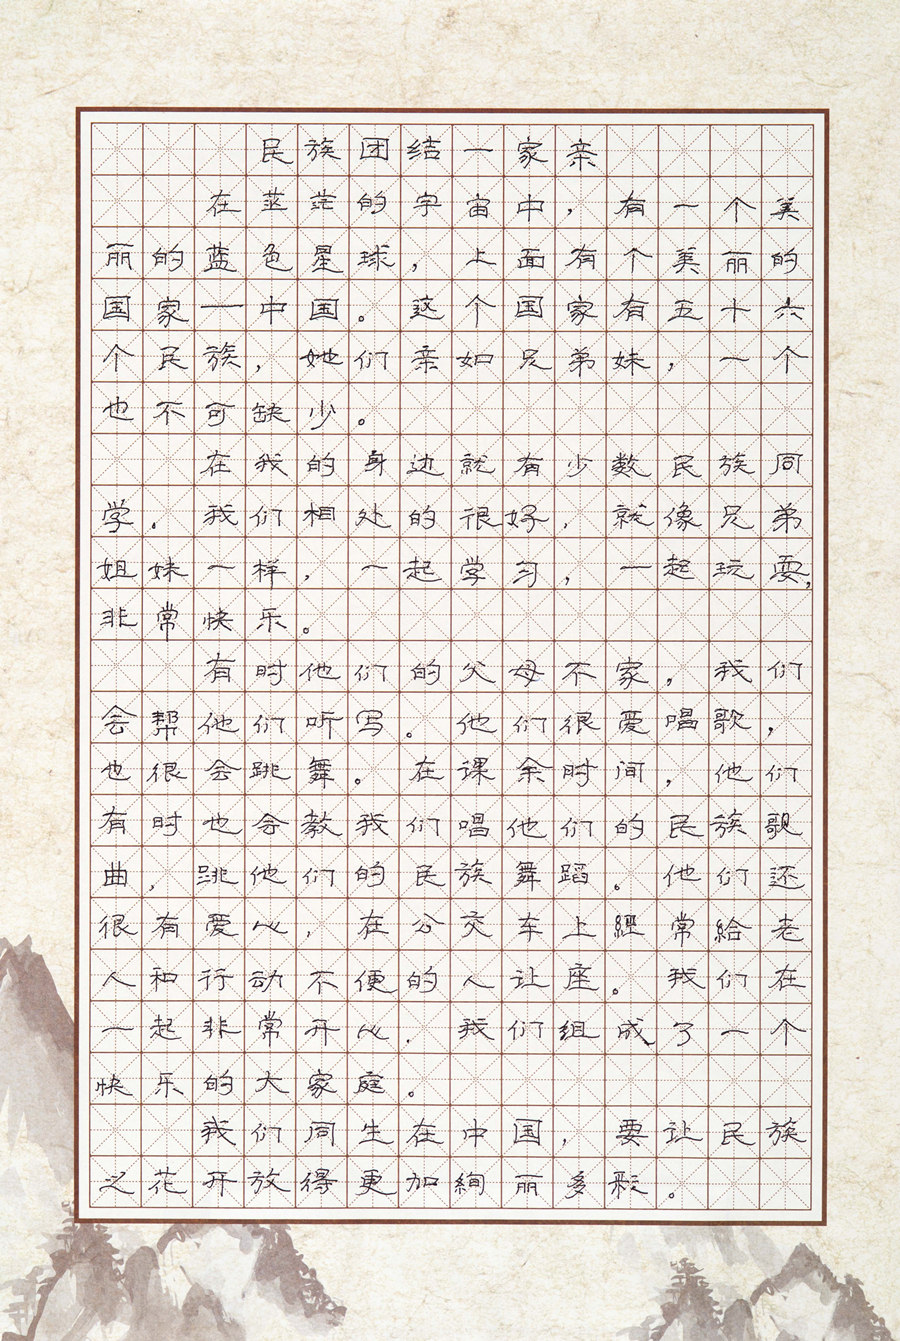 民族团结一家亲
在茫茫的宇宙中，有一个美
丽的蓝色星球，上面有个美丽的
国家一中国。这个国家有五十六
个民族，她们亲如兄弟妹，一个
也不可缺少。
在我的身边就有少数民族同
学．我们相处的很好，就像兄弟
姐妹一样，一起学习，一起玩耍，
非常快乐。
有时他们的父母不家。我们
会帮他们听写。他们很爱唱歌，
也很会跳舞。在课余时间，他们
有时也会教我们唱他们的民族歌
曲，跳他们的民族舞蹈。他们还
很有爱心，在公交车上經常給老
人和行动不便的人让座。我们在
一起非常开心．我们组成了一个
快乐的大家庭。
我们同生在中国，要让民族
之花开放得更加绚丽多彩。